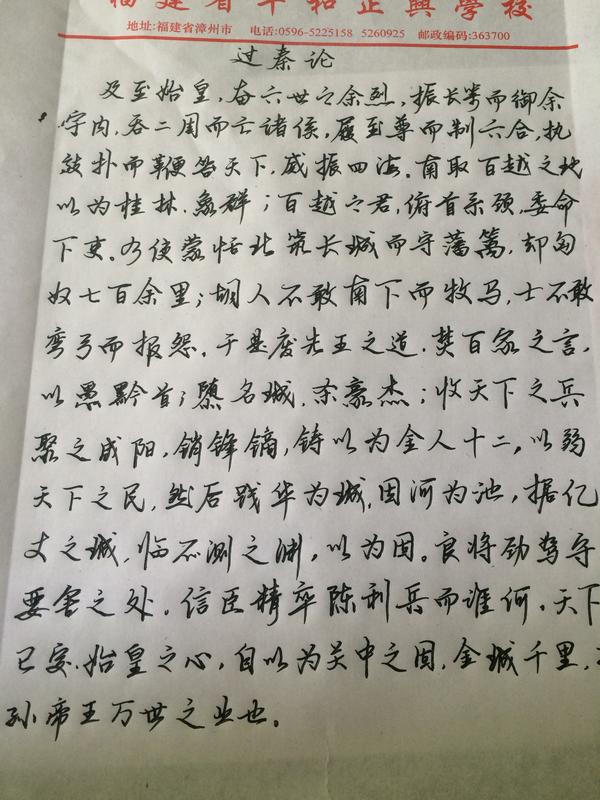 福建省平和正興學校
地址:福建省漳州市 电话:0596-5225158 5260925 邮政编码:363700
过秦论
及至始皇,奋六世之余烈,振长策而御余
宇内,吞二周而亡诸侯,履至尊而制六合,执
敲扑而鞭笞天下,威振四海。南取百越之地
以为桂林、象群;百越之君,俯首系颈,委命
下吏。乃使蒙恬北筑长城而守藩篱,却匈
奴七百余里;胡人不敢南下而牧马,士不敢
弯弓而报怨。于是废先王之道,焚百家之言,
以愚黔首;隳名城,杀豪杰;收天下之兵
聚之咸阳,销锋镝,铸以为金人十二,以弱
天下之民,然后践华为城,因河为池,据亿
丈之城,临不测之渊,以为固。良将劲弩守
要害之处,信臣精卒陈利兵而谁何。天下
已定,始皇之心,自以为关中之固,金城千里,
孙帝王万世之业也。